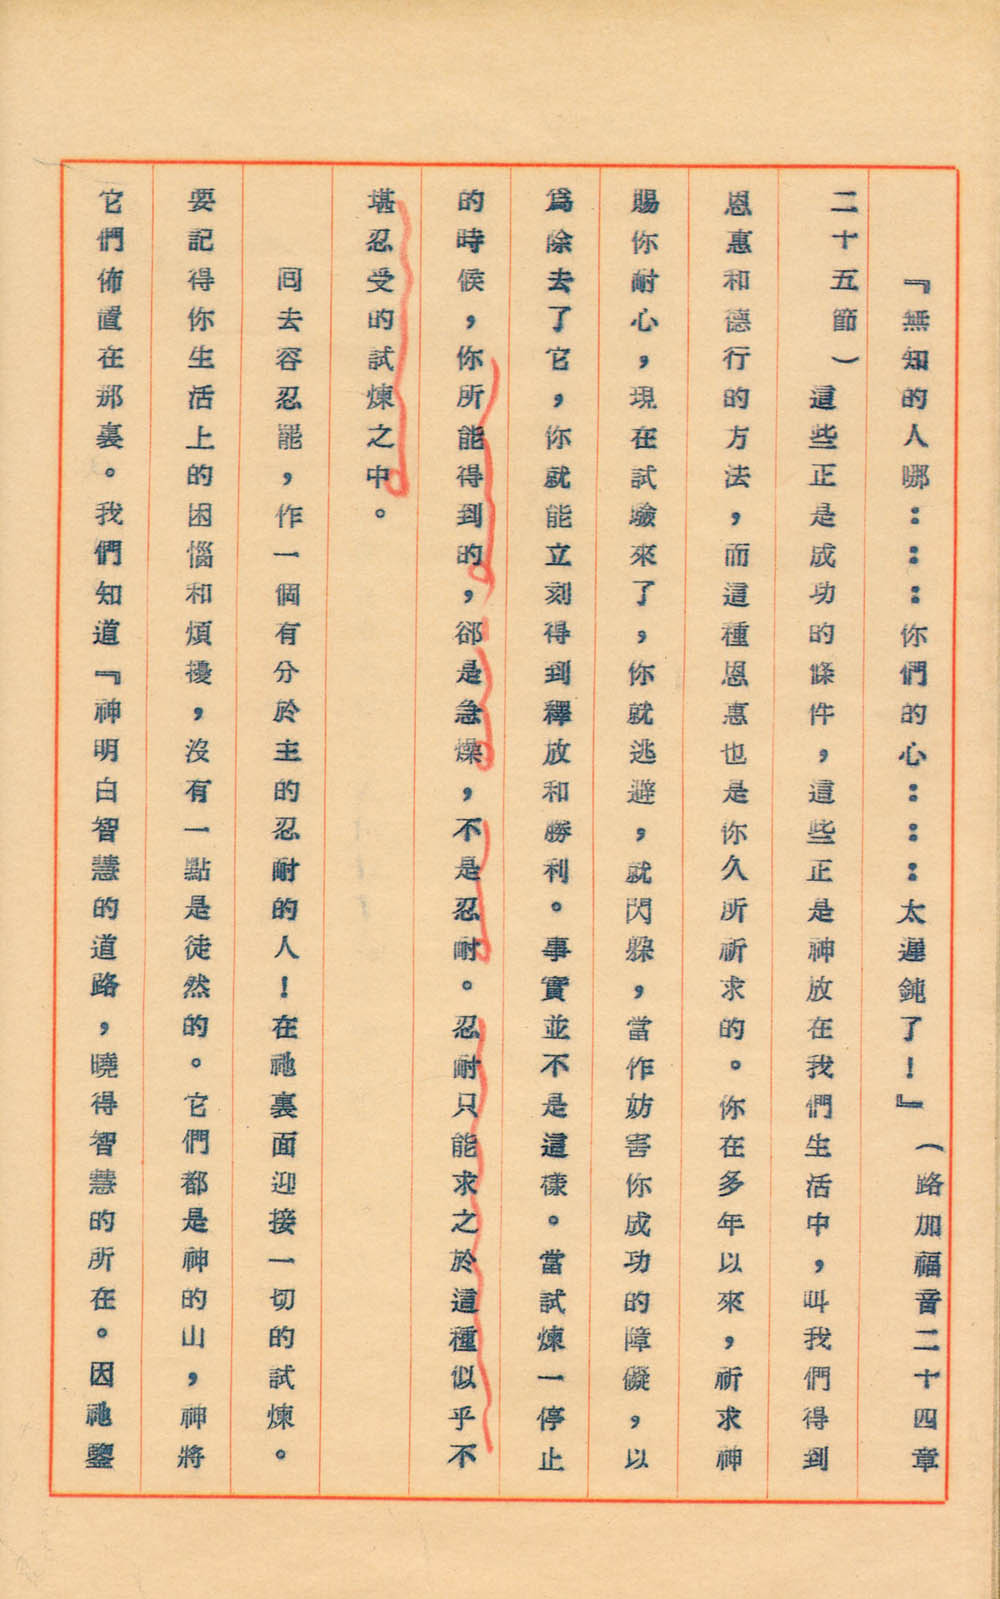 『無知的人哪：：：你們的心：：：太遲鈍了！』（路加福音二十四章
二十五節）這些正是成功的條件，這些正是神放在我們生活中，叫我們得到
恩惠和德行的方法，而這種恩惠也是你久所祈求的。你在多年以來，祈求神
賜你耐心，現在試驗來了，你就逃避，就閃躲，當作妨害你成功的障礙，以
爲除去了它，你就能立刻得到釋放和勝利。事實並不是這樣。當試煉一停止
的時候，你所能得到的，郤是急燥，不是忍耐。忍耐只能求之於這種似乎不
堪忍受的試煉之中。
囘去容忍罷，作一個有分於主的忍耐的人！在祂裏面迎接一切的試煉。
要記得你生活上的困惱和煩擾，沒有一點是徒然的。它們都是神的山，神將
它們佈置在那裏。我們知道『神明白智慧的道路，曉得智慧的所在。因祂鑒